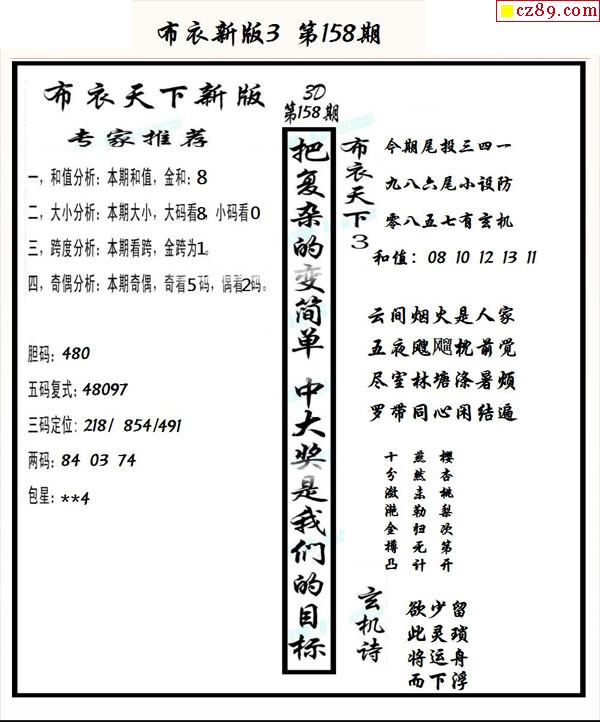 cz89.com
布衣新版3 第158期
布衣天下新版
专家推荐
一，和值分析：本期和值，金和：8
二，大小分析：本期大小，大码看8，小码看0
三，跨度分析：本期看跨，金跨为1。
四，奇偶分析：本期奇偶，奇看5码，偶看2码。
胆码：480
五码复式：48097
三码定位：218/ 854/491
两码：84 03 74
包星：**4
3D
第158期
把复杂的变简单 中大奖是我们的目标
布衣天下3
今期尾投三四一
九八六尾小设防
零八五七有玄机
和值：08 10 12 13 11
云间烟火是人家
五夜飕飗枕前觉
尽室林塘涤暑烦
罗带同心闲结遍
樱杏桃梨次第开
燕然未勒归无计
十分潋滟金樽凸
玄机诗
欲少留
此灵琐
将运舟
而下浮